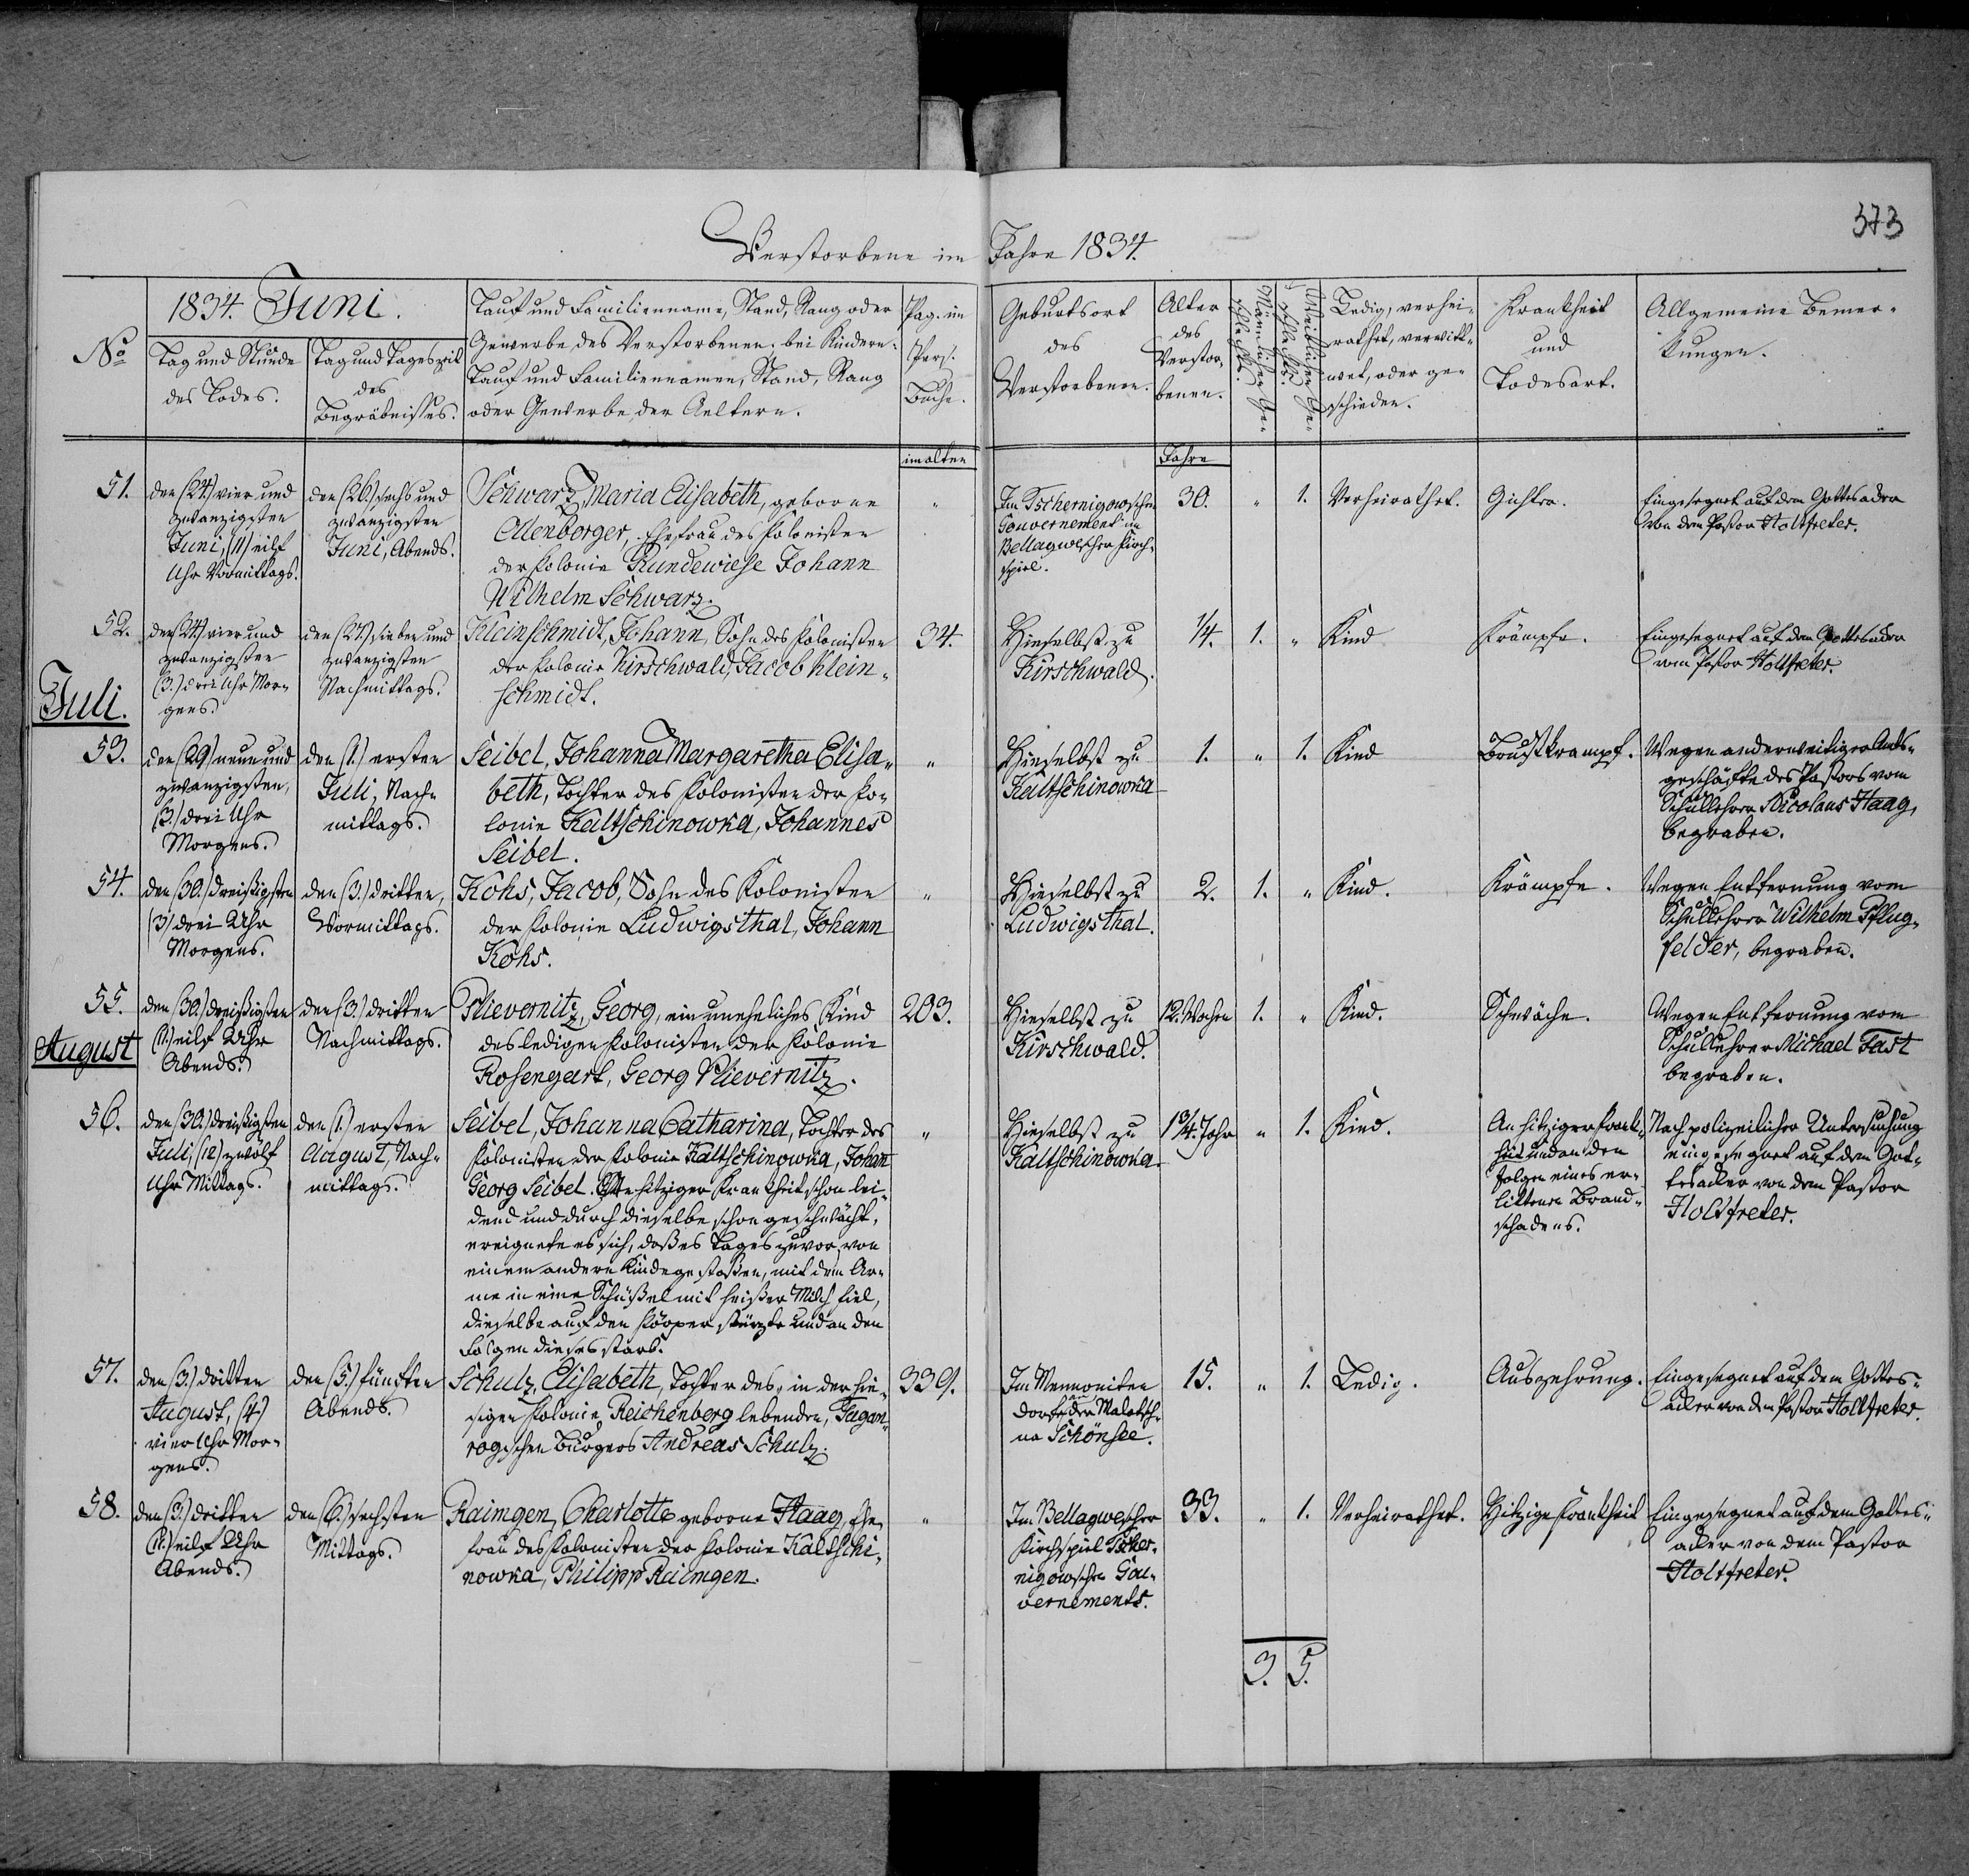 373
Verstorbene im Jahre 1834.
No
1834. Juni.
Tag und Stunde
des Todes.
Tag und Tageszeit
des
Begräbnisses.
Tauf und Familienname, Stand, Rang oder
Gewerbe des Verstorbenen. bei Kindern:
Tauf und Familiennamen, Stand, Rang
oder Gewerbe der Aeltern.
Pag. im
Pers.
Buche.
Geburtsort
des
Verstorbenen.
Alter
des
Verstor-
benen.
Männlichen Ge-
schlechts.
Weiblichen Ge-
schlechts.
Ledig, verhei-
rathet, verwitt-
wet, oder ge-
schieden.
Krankheit
und
Todesart.
Allgemeine Bemer-
kungen.
im alten
Jahre
51.
den (24.) vier und
zwanzigsten
Juni, (11) eilf
Uhr Vormittags.
den (26.) sechs und
zwanzigsten
Juni, Abends.
Schwarz, Maria Elisabeth, geborne
Ellenberger, Ehefrau des Kolonisten
der Kolonie Rundewiese Johann
Wilhelm Schwarz.
"
Im Tschernigowschen
Gouvernement im
Bellagweschen Kirch-
spiel.
30.
"
1.
Verheirathet.
Gichter.
Eingesegnet auf dem Gottesacker
von dem Pastor Holtfreter.
52.
den (24.) vier und
zwanzigsten
(3.) drei Uhr Mor-
gens.
den (27.) sieben und
zwanzigsten
Nachmittags.
Kleinschmidt, Johann, Sohn des Kolonisten
der Kolonie Kirschwald, Jacob Klein-
schmidt.
34.
Hieselbst zu
Kirschwald.
1/4.
1.
"
Kind
Krämpfe.
Eingesegnet auf dem Gottesacker
vom Pastor Holtfreter.
Juli.
53.
den (29) neun und
zwanzigsten,
(3.) drei Uhr
Morgens.
den (1.) ersten
Juli, Nach-
mittags.
Seibel, Johanna Margaretha Elisa-
beth, Tochter des Kolonisten der Ko-
lonie Kaltschinowka, Johannes
Seibel.
"
Hieselbst zu
Kaltschinowka
1.
"
1.
Kind
Brustkrampf.
Wegen anderweitiger Amts-
geschäfte des Pastors vom
Schullehrer Nicolaus Haag,
begraben.
54.
den (30.) dreißigsten
(3) drei Uhr
Morgens.
den (3.) dritten,
Vormittags.
Kohs, Jacob, Sohn des Kolonisten
der Kolonie Ludwigsthal, Johann
Kohs.
"
Hieselbst zu
Ludwigsthal.
2.
1.
"
Kind.
Krämpfe.
Wegen Entfernung vom
Schullehrer Wilhelm Pflug-
felder, begraben.
55.
den (30.) dreißigsten
(11.) eilf Uhr
Abends.
den (3.) dritten
Nachmittags.
Plievernitz, Georg, ein uneheliches Kind
des ledigen Kolonisten der Kolonie
Rosengart, Georg Plievernitz.
203.
Hieselbst zu
Kirschwald.
12. Wochen
1.
"
Kind.
Schwäche.
Wegen Entfernung vom
Schullehrer Michael Fast
begraben.
August
56.
den (30.) dreißigsten
Juli, (12) zwölf
Uhr Mittags.
den (1.) ersten
August, Nach-
mittags.
Seibel, Johanna Catharina, Tochter des
Kolonisten der Kolonie Kaltschinowka, Johan
Georg Seibel. An hitziger Krankheit schon lei-
dend und durch dieselbe schon geschwächt,
ereignete es sich, daß es Tages zuvor, von
einem andern Kinde gestoßen, mit dem Ar-
me in eine Schüßel mit heißer Milch fiel,
dieselbe auf den Körper stürzte und an den
Folgen dieses starb.
"
Hieselbst zu
Kaltschinowka.
1 3/4. Jahr
"
1.
Kind.
An hitziger Krank-
heit und an den
Folgen eines er-
littenen Brand-
schadens.
Nach polizeilicher Untersuchung
eingesegnet auf dem Got-
tesacker von dem Pastor
Holtfreter.
57.
den (3.) dritten
August, (4.)
vier Uhr Mor-
gens.
den (5.) fünften
Abends.
Schulz, Elisabeth, Tochter des, in der hie-
sigen Kolonie Reichenberg lebenden, Tagan-
rogischen Bürgers Andreas Schulz.
339.
Im Mennoniten
Dorfe an der Malotsch-
na Schönsee.
15.
"
1.
Ledig.
Auszehrung.
Eingesegnet auf dem Gottes-
acker von dem Pastor Holtfreter.
58.
den (3.) dritten
(11.) eilf Uhr
Abends.
den (6.) sechsten
Mittags.
Raimgen, Charlotte geborne Haag, Ehe-
frau des Kolonisten der Kolonie Kaltschi-
nowka, Philipp Raimgen.
"
Im Bellagweschen
Kirchspiel Tscher-
nigowschen Gou-
vernements.
33.
"
1.
Verheirathet.
Hitzige Krankheit
Eingesegnet auf dem Gottes-
acker von dem Pastor
Holtfreter.
3. 5.